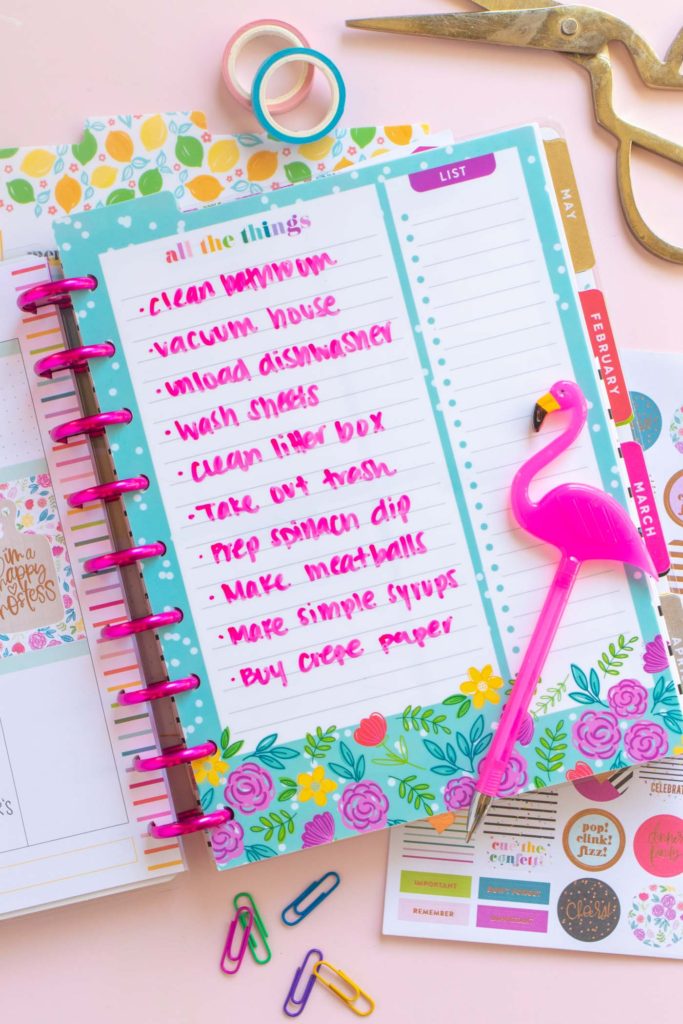 LIST
all the things
• clean bathroom
• vacuum house
• unload dishwasher
• wash sheets
• clean litter box
• Take out trash
• Prep spinach dip
• Make meatballs
• Make simple syrups
• Buy crepe paper
MAY
FEBRUARY
MARCH
APRIL
i'm a
happy
hostess
cue the
confetti
pop!
clink!
fizz!
CELEBRATE
IMPORTANT
DON'T FORGET
REMEMBER
cheers!